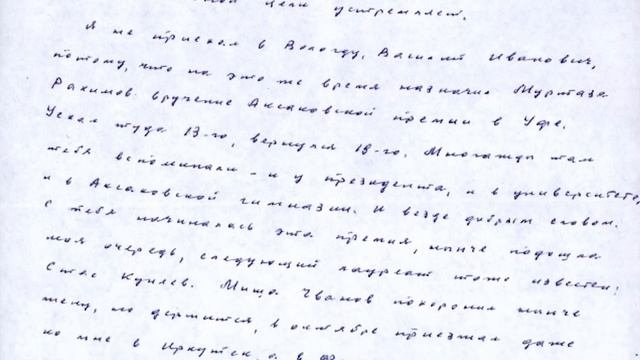 ной цели устремляет.
Я не приехал в Вологду, Василий Иванович,
потому, что на это же время назначил Муртаза
Рахимов вручение Аксаковской премии в Уфе.
Уехал туда 13-го, вернулся 18-го. Многажды там
тебя вспоминали – и у президента, и в университете,
и в Аксаковской гимназии. И везде добрым словом.
С тебя начиналась эта премия, нынче подошла
моя очередь, следующий лауреат тоже известен:
Стас Куняев. Миша Чванов похоронил нынче
жену, но держится, в октябре приезжал даже
ко мне в Иркутск, а в